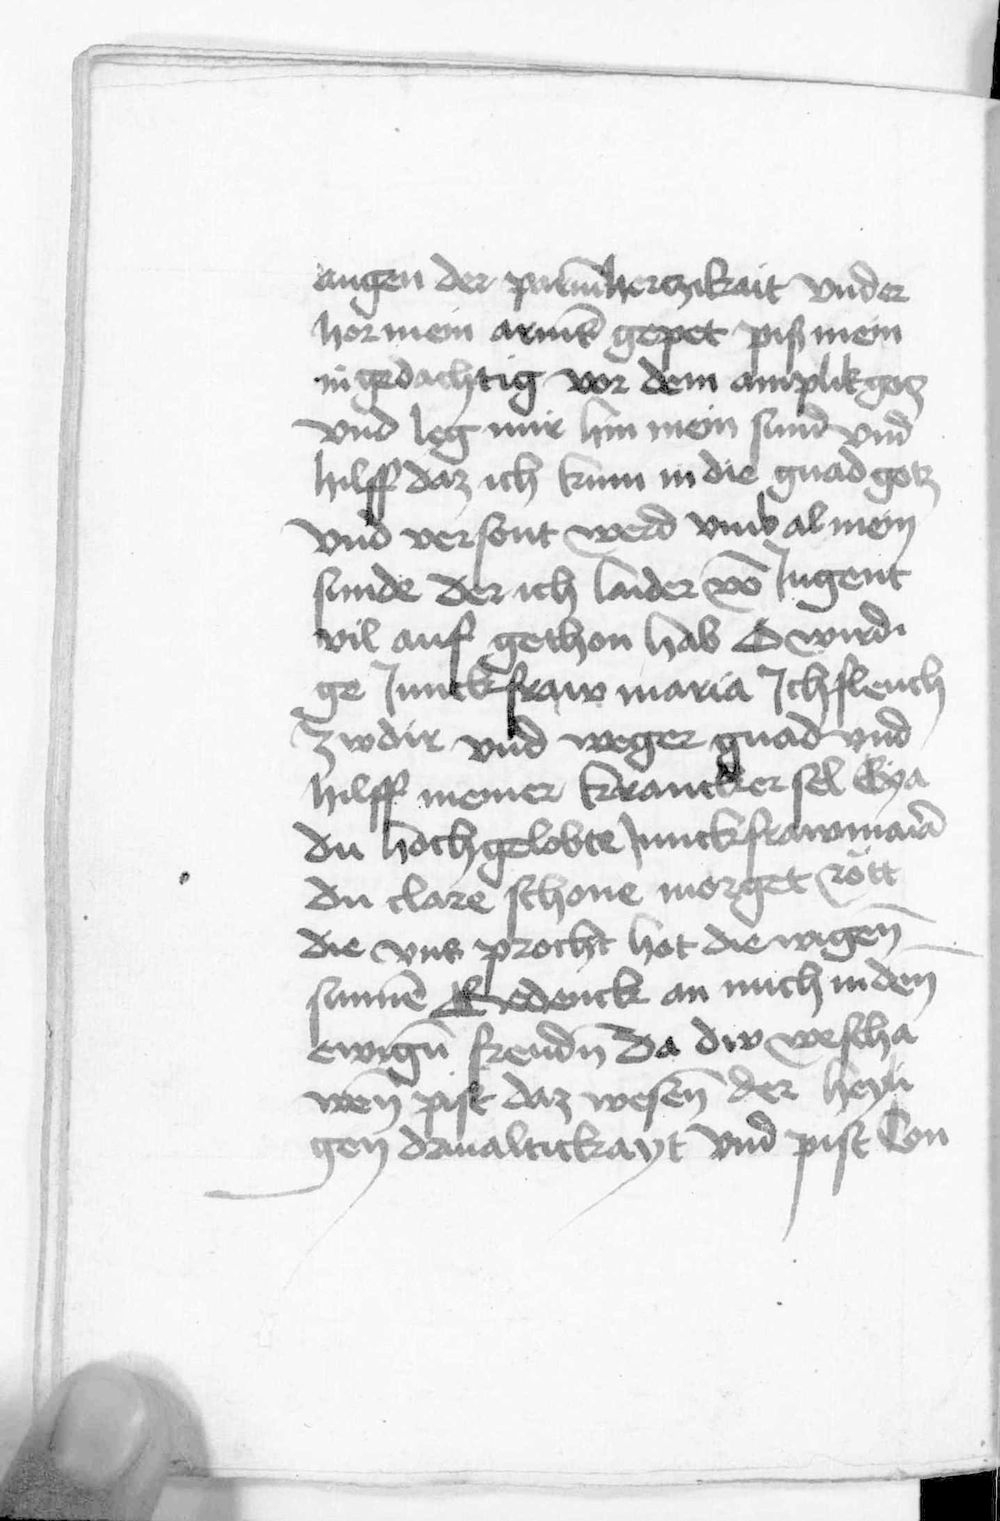 augen der parmherczikait vnder
hor mein armß gepet piß mein
in gedachtig vor dem amplik gotz
vnd leg mir hin mein sund vnd
hilff daz ich kum in die gnad gotz
vnd versont werd vmb al mein
sunde der ich laider vō Jugent
vil auf gethon hab O wirdi
ge Junckfraw maria Ich fleuch
zw dir vnd weger gnad vnd
hilff meiner krancker sel Eya
du hoch gelobte Junckfraw maria
du clare schone morget rött
die vns procht hot die ewigen̄
sunnē Gedenck an mich in den̄
ewign̄ freudn̄ Da dw bescha
wen̄ pist daz wesen̄ der heyli
gen driualtickayt vnd pist Con